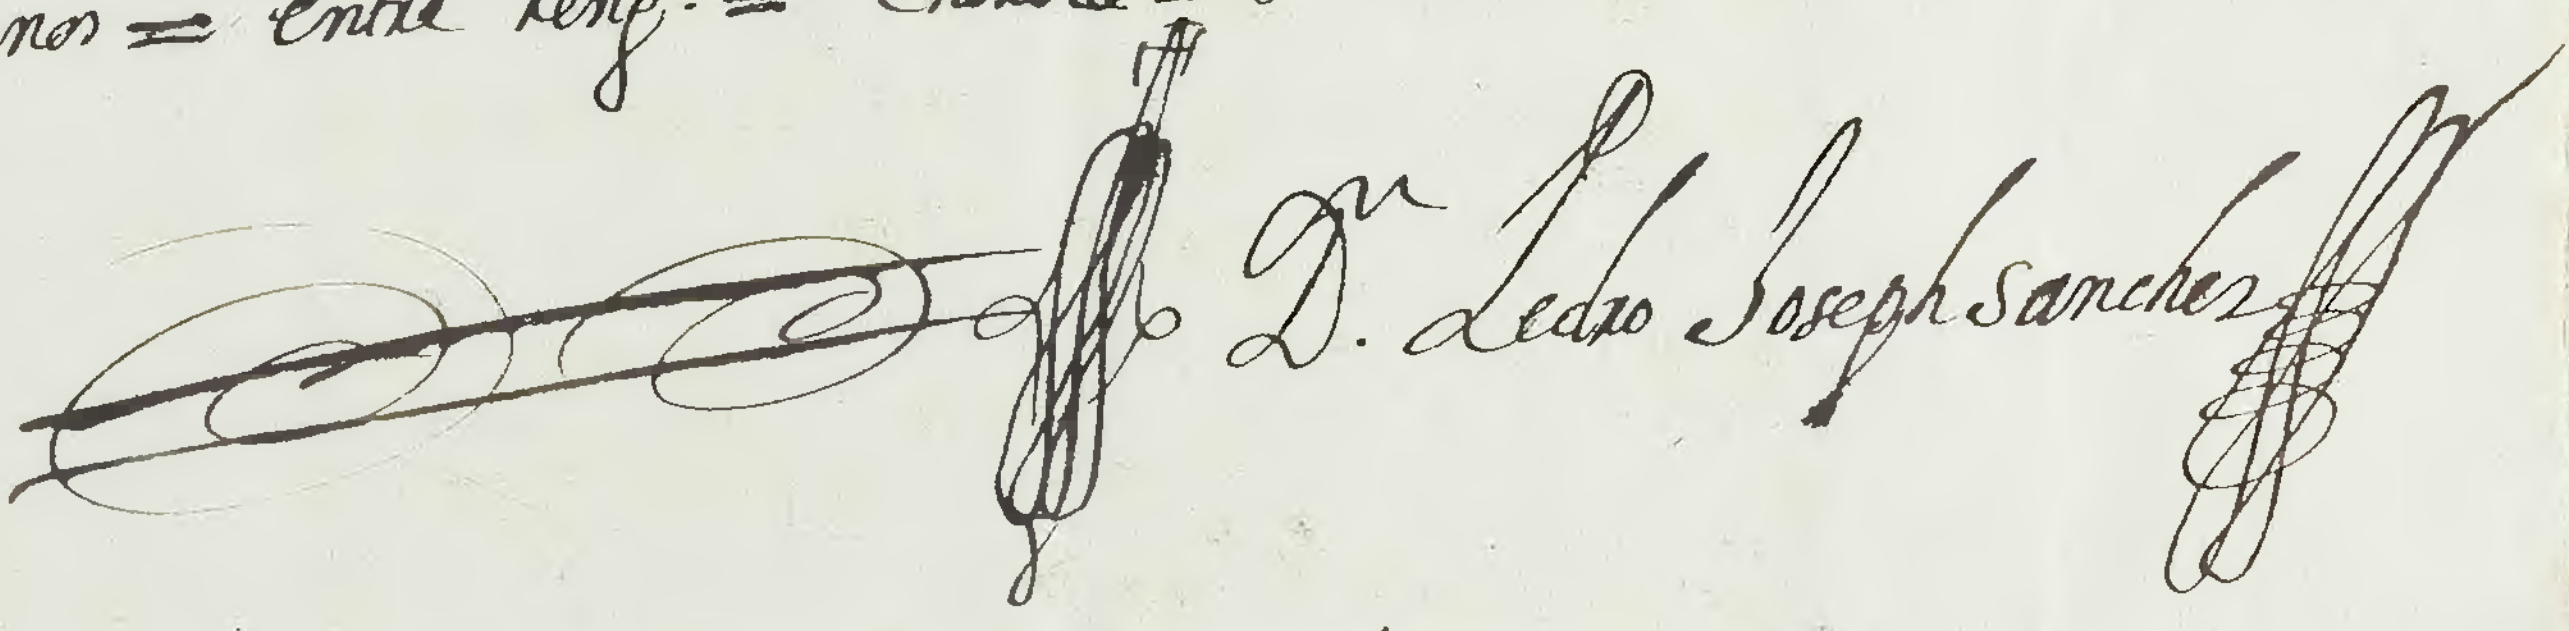 nos = entre reng. =
Dn. Pedro Joseph Sanchez